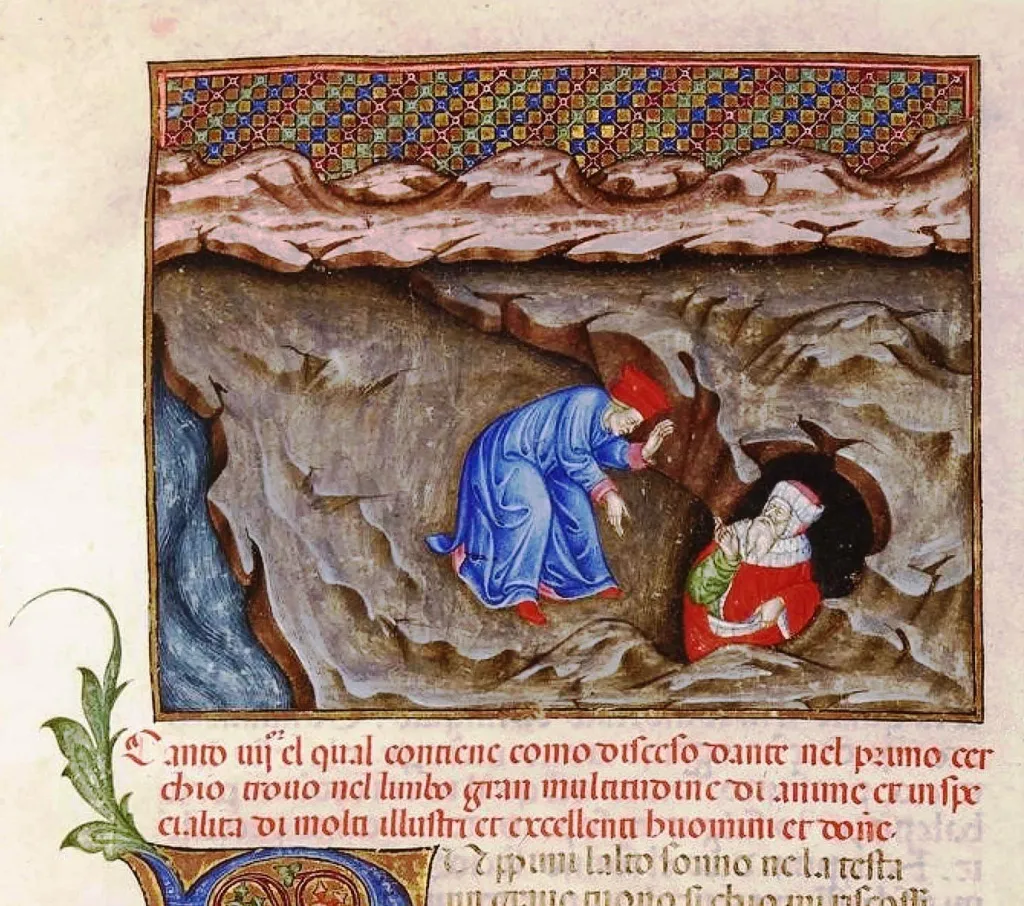 Canto iiij el qual contiene como disceso dante nel primo cer
chio trouo nel limbo gran multitudine di anime et in spe
cialita di molti illustri et excellenti huomini et donne.
Rppimi lalto sonno ne la testa
un graue tuono si chio mi riscossi